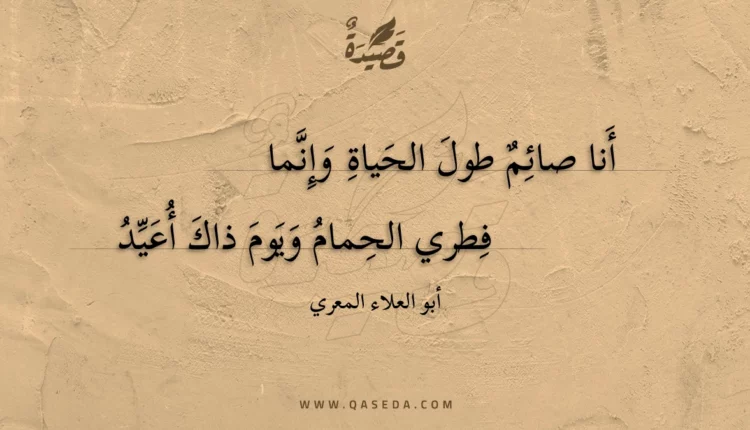 قَصِيدَةٌ
أَنا صائِمٌ طولَ الحَياةِ وَإِنَّما
فِطري الحِمامُ وَيَومَ ذاكَ أُعَيِّدُ
أبو العلاء المعري
WWW.QASEDA.COM